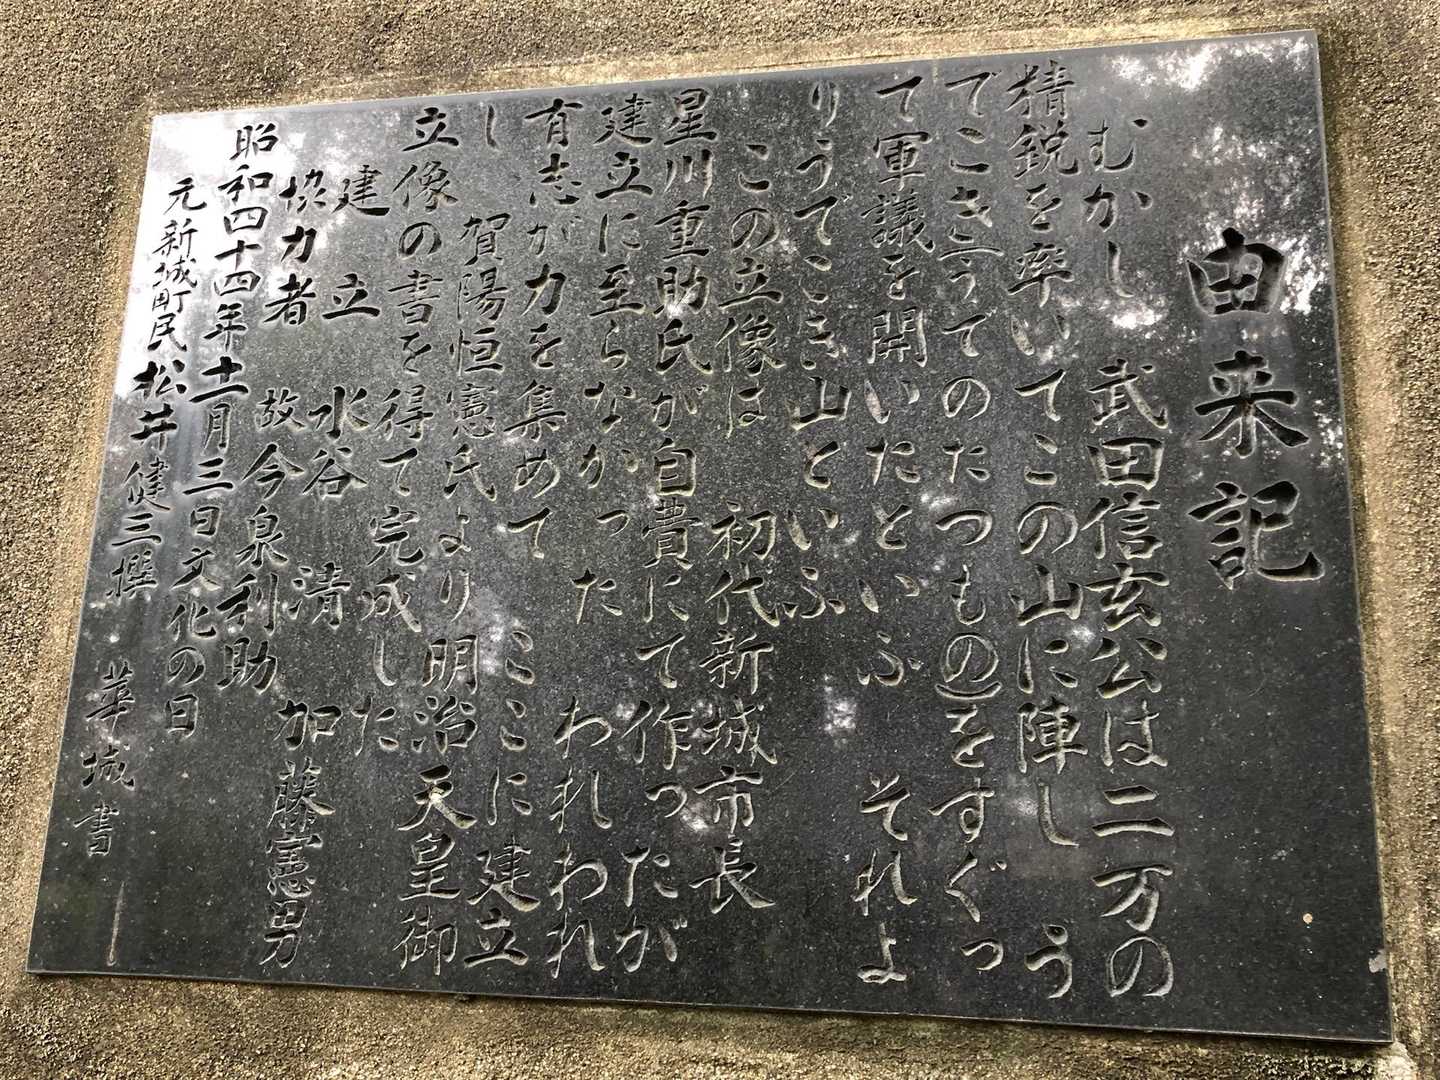 由来記
むかし　武田信玄公は二万の
精鋭を率いてこの山に陣し　う
でこき(うでのたつもの)をすぐっ
て軍議を開いたといふ　それよ
りうでこき山といふ
この立像は　初代新城市長
星川重助氏が自費にて作ったが
建立に至らなかった　われわれ
有志が力を集めて　ここに建立
し　賀陽恒憲氏より明治天皇御
立像の書を得て完成した
建立　水谷　清　加藤憲男
協力者　故今泉利助
昭和四十四年十一月三日文化の日
元新城町民松井健三撰　華城書